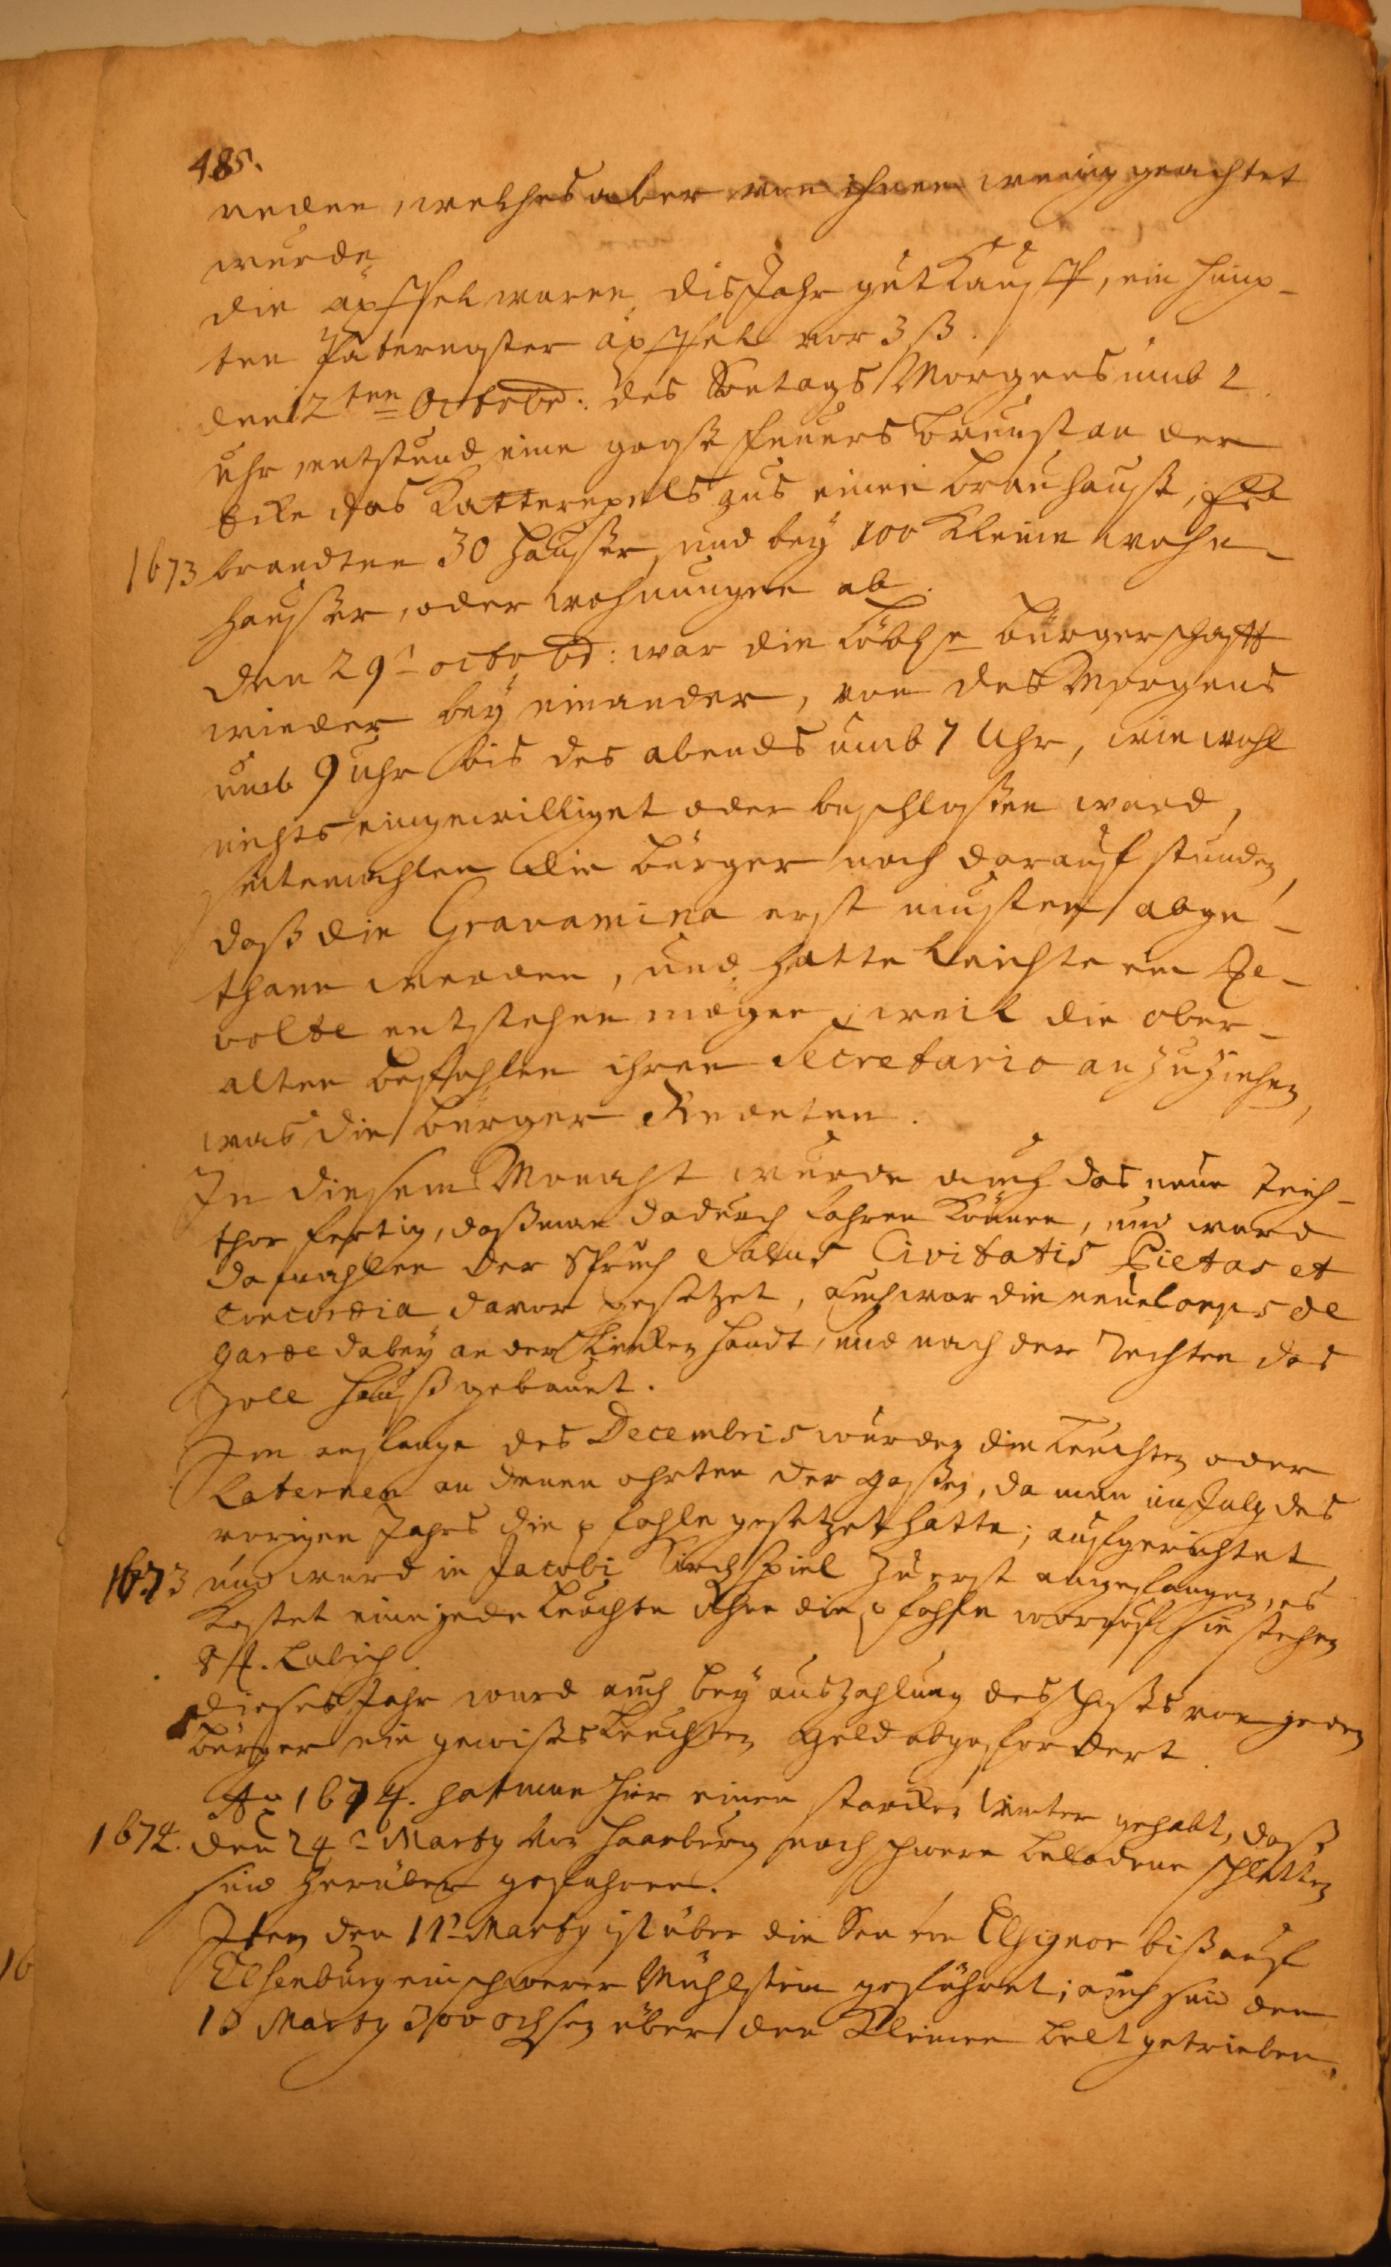 485.
reden, welches aber von ihnen wenig geachtet
wurde
die äpffel waren dis Jahr gut Kauff, ein himp-
ten Paternoster äpffel vor 3 ß.
den 12ten Octobr: des Sontags Morgens umb 2
uhr entstund eine große feuers brunst an der
Ecke des Katterepels aus einem brauhauße, Es
1673 brandten 30 häußer und bey 100 Kleine wohn-
häußer, oder wohnungen ab.
den 29t octobr: war die Löbl. bürgerschafft
wieder bey einander, von des Morgens
umb 9 uhr bis des abends umb 7 Uhr, wie wohl
nichts eingewilliget oder beschloßen ward,
sintemahlen die bürger noch darauf stunden,
daß die Gravamina erst musten abge-
than werden, und hätte leichte ein Re-
volte entstehen mögen, weil die ober-
alten befohlen ihren Secretario
was die bürger Redeten.
In diesem Monaht wurde auch das neue Teich-
thor fertig, daß man dadurch fahren Könnte, und ward
damahlen der Spruch Salus Civitatis Pietas et
Concordia davor gesetzet, auch war die neue Corps de
Garde dabey an der Lincken handt, und nach der Rechten das
Zoll hauß gebauet.
Im anfange des Decembris wurden die Leuchten oder
Laternen an denen ohrten der gaßen, da man im July des
vorigen Jahrs die pfähle gesetzet hatte, aufgerichtet,
1673 und ward in Jacobi Kirchspiel zu erst angefangen, es
Kostet eine jede Leuchte ohne die pfähle worauf sie stehen
Lübisch
dieses Jahr ward auch bey auszahlung des schoßes von jeden
bürger ein gewißes Leuchten Geld abgefordert.
Ao 1674. hat man hier einen starcken winter gehabt, daß
1674. den 24t Marty von Haarburg noch schwere beladene schlitten
sind herüber gefahren.
Item den 11t Marty ist über die See von Elsignor biß auf
Elsenburg ein schwerer Mühlstein geführet; auch sind den
13 Marty 300 ochsen über den Kleinen belt getrieben,
16